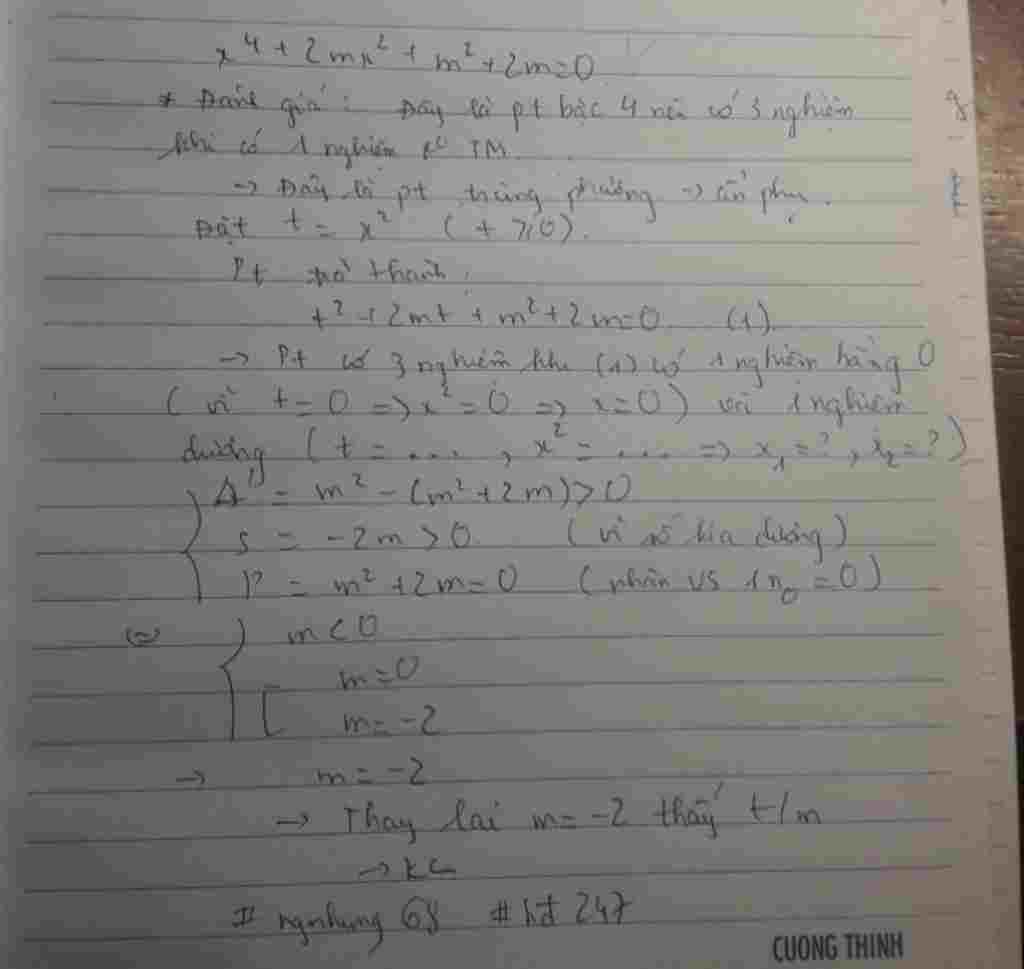 x⁴ + 2mx² + m² + 2m = 0
* Đánh giá : Đây là pt bậc 4 nên có 3 nghiệm
khi có 1 nghiệm k⁰ TM.
→ Đây là pt trùng phương → ẩn phụ.
Đặt t = x² (t ≥ 0).
Pt trở thành :
t² + 2mt + m² + 2m = 0 (1)
→ Pt có 3 nghiệm khi (1) có 1 nghiệm bằng 0
( vì t = 0 => x² = 0 => x = 0 ) và 1 nghiệm
dương ( t = ... , x² = ... => x₁ = ? , x₂ = ? )
Δ' = m² - (m² + 2m) > 0
S = -2m > 0 ( vì số kia dương )
P = m² + 2m = 0 ( nhân vs 1 n₀ = 0 )
<=> { m < 0
[ m = 0
m = -2
→ m = -2
→ Thay lại m = -2 thấy t/m
→ KL
# ngnhung 68 # hđ 247
CUONG THINH